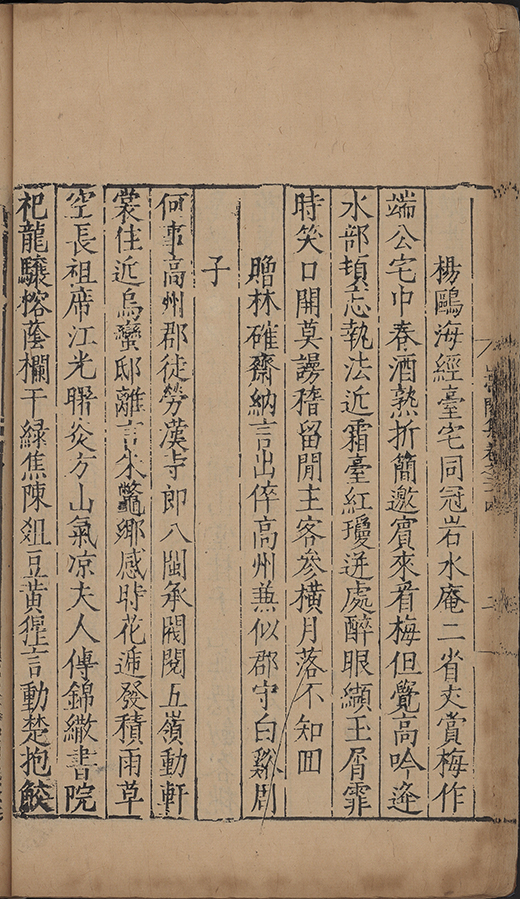 楊鷗海經臺宅同冠岩水庵二省丈賞梅作
端公宅中春酒熟折簡邀賓來看梅但覺高吟逢
水部頓忘執法近霜臺紅瓊迸處醉眼纈玉屑霏
時笑口開莫謗稽留閒主客參橫月落不知回
贈林確齋納言出倅高州兼似郡守白谿周
子
何事高州郡徒勞漢寺郎八閩承閥閱五嶺動軒
裳住近烏蠻邸離言木鼈鄉感時花遞發積雨草
空長祖席江光聯炎方山氣凉夫人傳錦繖書院
祀龍驤榕蔭欄干綠焦陳俎豆黃猩言動楚抱鮫